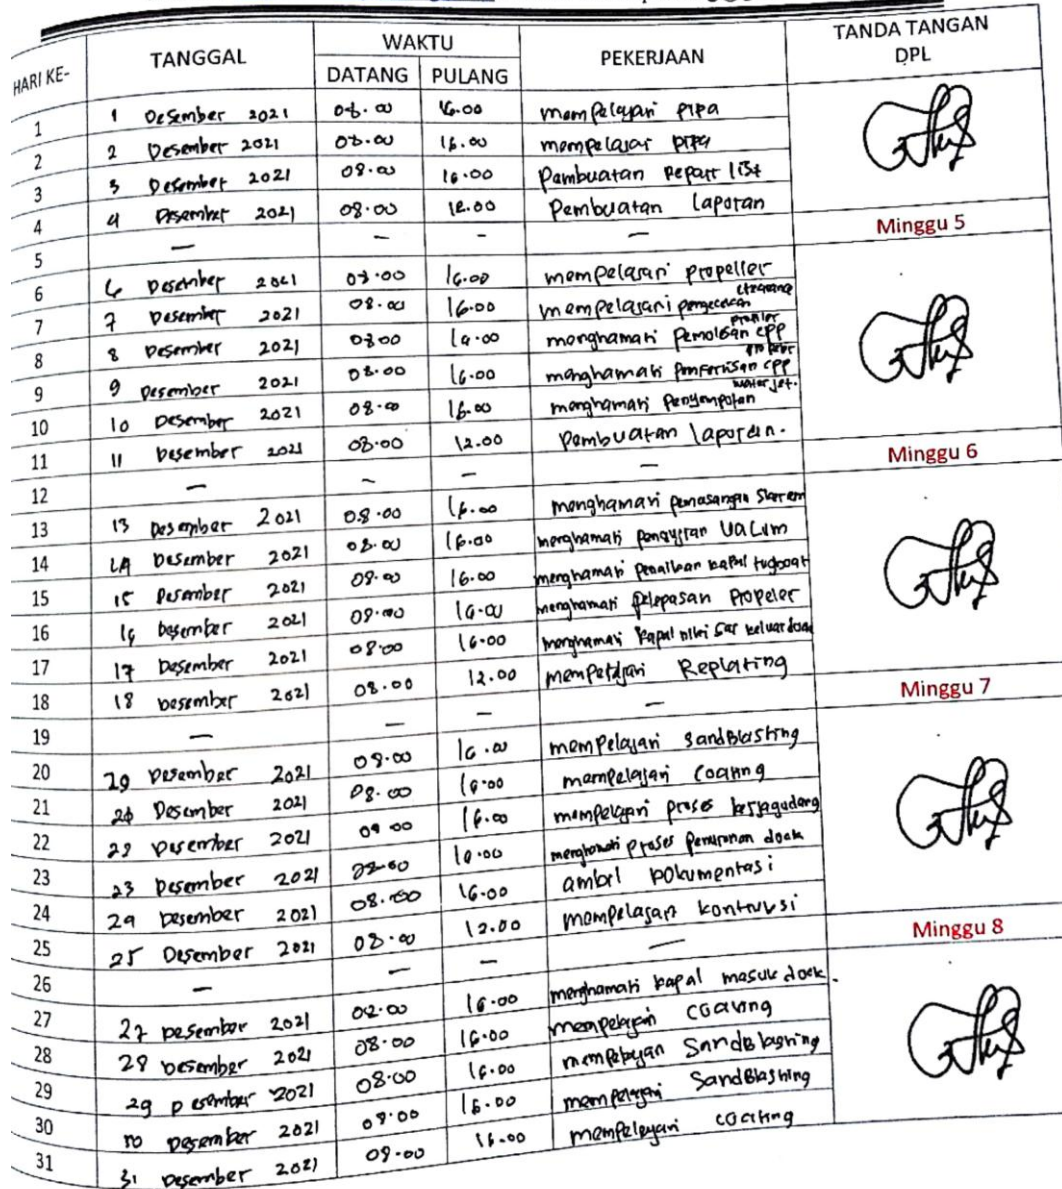 HARI KE- TANGGAL WAKTU PEKERJAAN TANDA TANGAN DPL
DATANG PULANG
1 1 Desember 2021 08.00 16.00 mempelajari pipa
2 2 Desember 2021 08.00 16.00 mempelajar pipa
3 3 Desember 2021 08.00 16.00 Pembuatan Repair list
4 4 Desember 2021 08.00 12.00 Pembuatan Laporan
5 — – - — Minggu 5
6 6 Desember 2021 08.00 16.00 mempelajari propeller
7 7 Desember 2021 08.00 16.00 mempelajari pengecekan
8 8 Desember 2021 08.00 16.00 menghamati Pemolesan cpp
9 9 Desember 2021 08.00 16.00 menghamati cpp
10 10 Desember 2021 08.00 16.00 menghamati Penyemprotan water jet.
11 11 Desember 2021 08.00 12.00 Pembuatan laporan.
12 — ~ – — Minggu 6
13 13 Desember 2021 08.00 16.00 menghamati pemasangan
14 14 Desember 2021 08.00 16.00 menghamati
15 15 Desember 2021 08.00 16.00 menghamati Penaikan kapal tugboat
16 16 Desember 2021 08.00 16.00 menghamati pelepasan Propeler
17 17 Desember 2021 08.00 16.00 menghamati kapal keluar doak
18 18 Desember 2021 08.00 12.00 mempelajari Replating
19 — — – — Minggu 7
20 20 Desember 2021 08.00 16.00 mempelajari sandBlasting
21 21 Desember 2021 08.00 16.00 mempelajari Coating
22 22 Desember 2021 08.00 16.00 mempelajari proses
23 23 Desember 2021 08.00 16.00 menghamati proses Penurunan doak
24 24 Desember 2021 08.00 16.00 ambil Dokumentasi
25 25 Desember 2021 08.00 12.00 mempelajari kontruksi
26 — — – — Minggu 8
27 27 Desember 2021 08.00 16.00 menghamati kapal masuk doek.
28 28 Desember 2021 08.00 16.00 mempelajari coating
29 29 Desember 2021 08.00 16.00 mempelajari SandBlasting
30 30 Desember 2021 08.00 16.00 mempelajari SandBlashing
31 31 Desember 2021 08.00 16.00 mempelajari coating